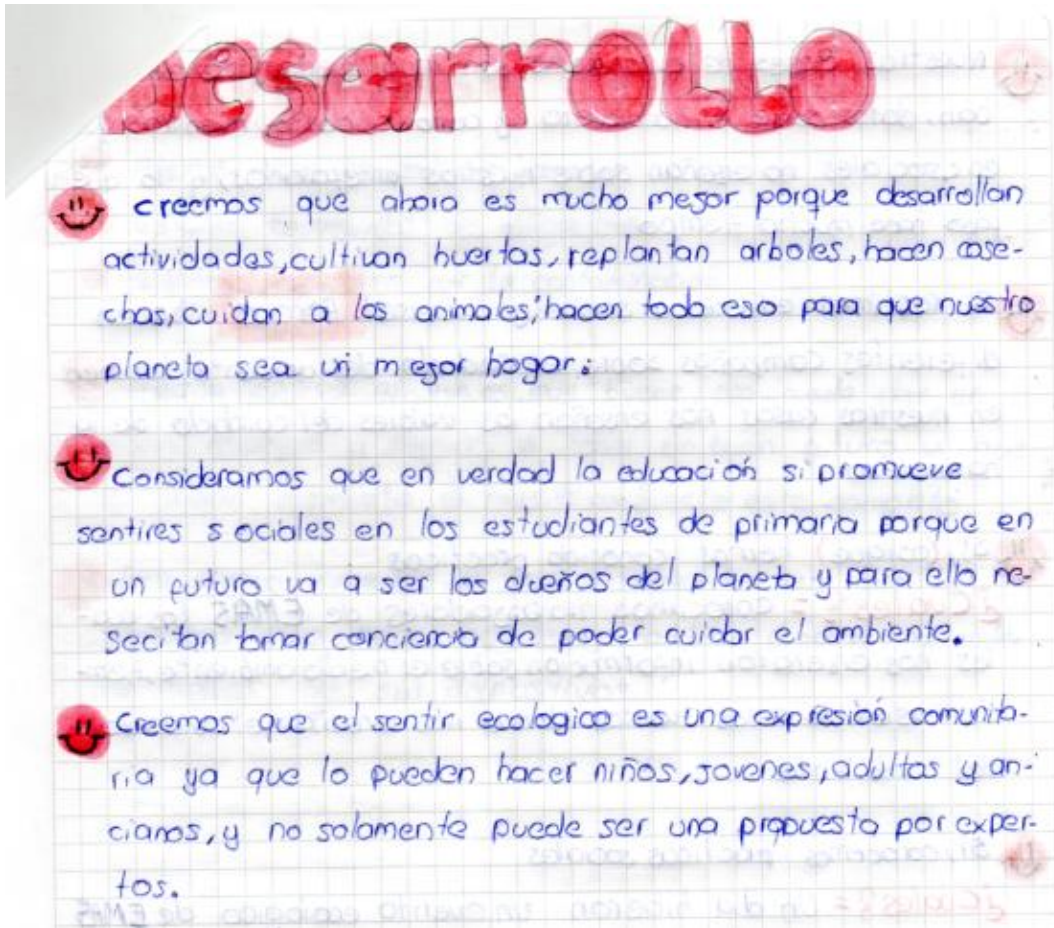 DesarroLLo
creemos que ahora es mucho mejor porque desarrollan
actividades, cultivan huertas, replantan arboles, hacen cose-
chas, cuidan a los animales; hacen todo eso para que nuestro
planeta sea un mejor hogar.
Consideramos que en verdad la educación si promueve
sentires sociales en los estudiantes de primaria porque en
un futuro va a ser los dueños del planeta y para ello ne-
secitan tomar conciencia de poder cuidar el ambiente.
Creemos que el sentir ecologico es una expresión comunita-
ria ya que lo pueden hacer niños, jovenes, adultos y an-
cianos, y no solamente puede ser una propuesta por exper-
tos.